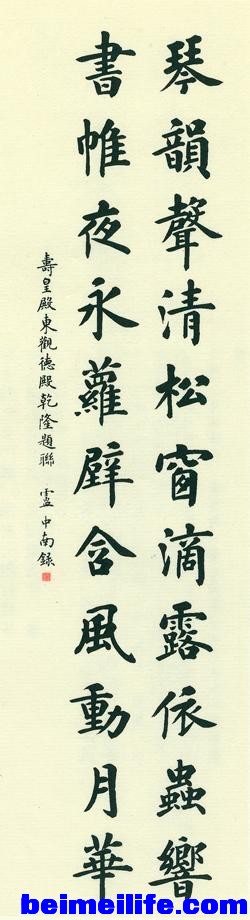 琴韻聲清松窗滴露依蟲響
書帷夜永蘿壁含風動月華
壽皇殿東觀德殿乾隆題聯 盧中南錄
beimeilife.com